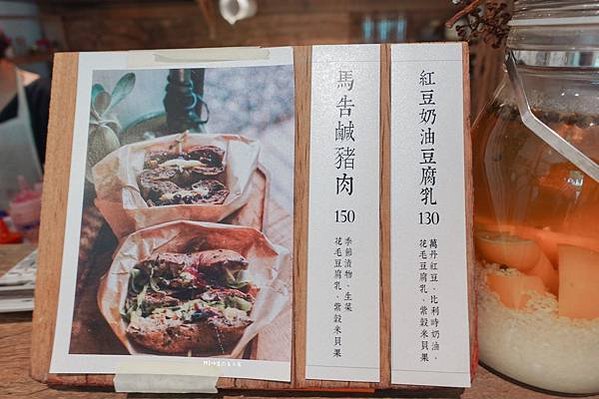 紅豆奶油豆腐乳
130
萬丹紅豆、比利時奶油、
花毛豆腐乳、紫穀米貝果
馬告鹹豬肉
150
季節漬物、生菜
花毛豆腐乳、紫穀米貝果